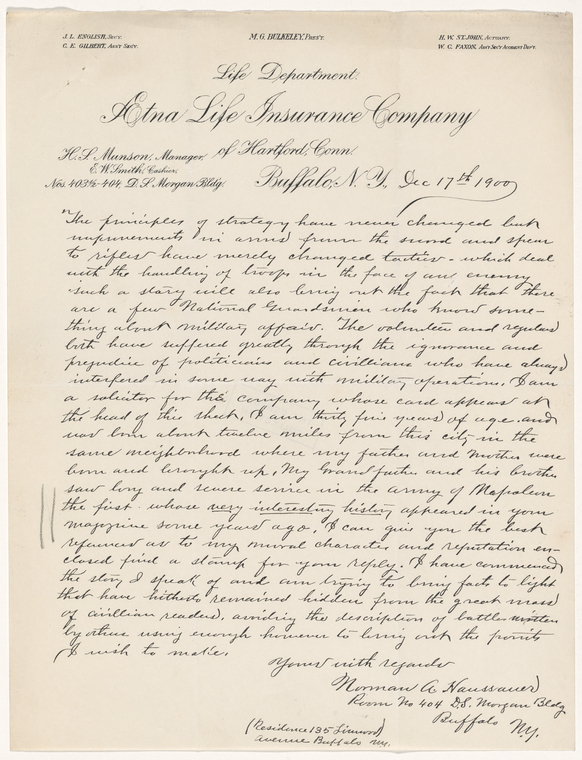 J. L. ENGLISH, Sec'y.
C. E. GILBERT, Ass't Sec'y.
M. G. BULKELEY, Pres't.
H. W. ST. JOHN, Actuary.
W. C. FAXON, Ass't Sec'y Accident Dep't.
Life Department.
Ætna Life Insurance Company
of Hartford, Conn.
H. S. Munson, Manager,
E. W. Smith, Cashier,
Nos. 403½-404 D. S. Morgan Bldg.
Buffalo, N. Y. Dec 17th 1900
"The principles of strategy have never changed but
improvements in arms from the sword and spear
to rifles have merely changed tactics - which deal
with the handling of troops in the face of an enemy
such a story will also bring out the fact that there
are a few National Guardsmen who know some-
thing about military affairs. The volunteer and regulars
both have suffered greatly through the ignorance and
prejudice of politicians and civillians who have always
interfered in some way with military operations. I am
a solicitor for the company whose card appears at
the head of this sheet. I am thirty five years of age and
was born about twelve miles from this city in the
same neighborhood where my father and mother were
born and brought up. My Grandfather and his brother
saw long and severe service in the army of Napoleon
the first whose very interesting history appeared in your
magazine some years ago, I can give you the best
references as to my moral character and reputation en-
closed find a stamp for your reply. I have commenced
the story I speak of and am trying to bring facts to light
that have hitherto remained hidden from the great mass
of civillian readers, avoiding the description of battles written
by others using enough however to bring out the points
I wish to make.
Yours with regards
Norman A Haussauer
Room No 404 D.S. Morgan Bldg
Buffalo NY.
(Residence 135 Linwood)
Avenue Buffalo NY.